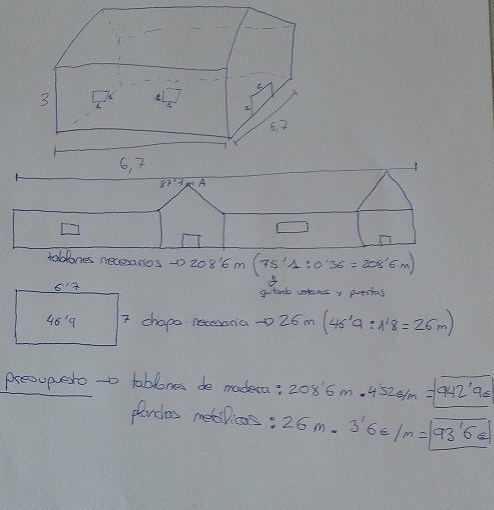 1
1
1
1
2
2
3
6,7
6,7
87'1 m A
tablones necesarios → 208'6 m (75'1 : 0'36 = 208'6 m)
quitando ventanas y puertas
6'7
46'9
7 chapa necesaria → 26 m (46'9 : 1'8 = 26 m)
presupuesto → tablones de madera : 208'6 m . 4'52 €/m = 942'9 €
planchas metálicas : 26 m . 3'6 €/m = 93'6 €